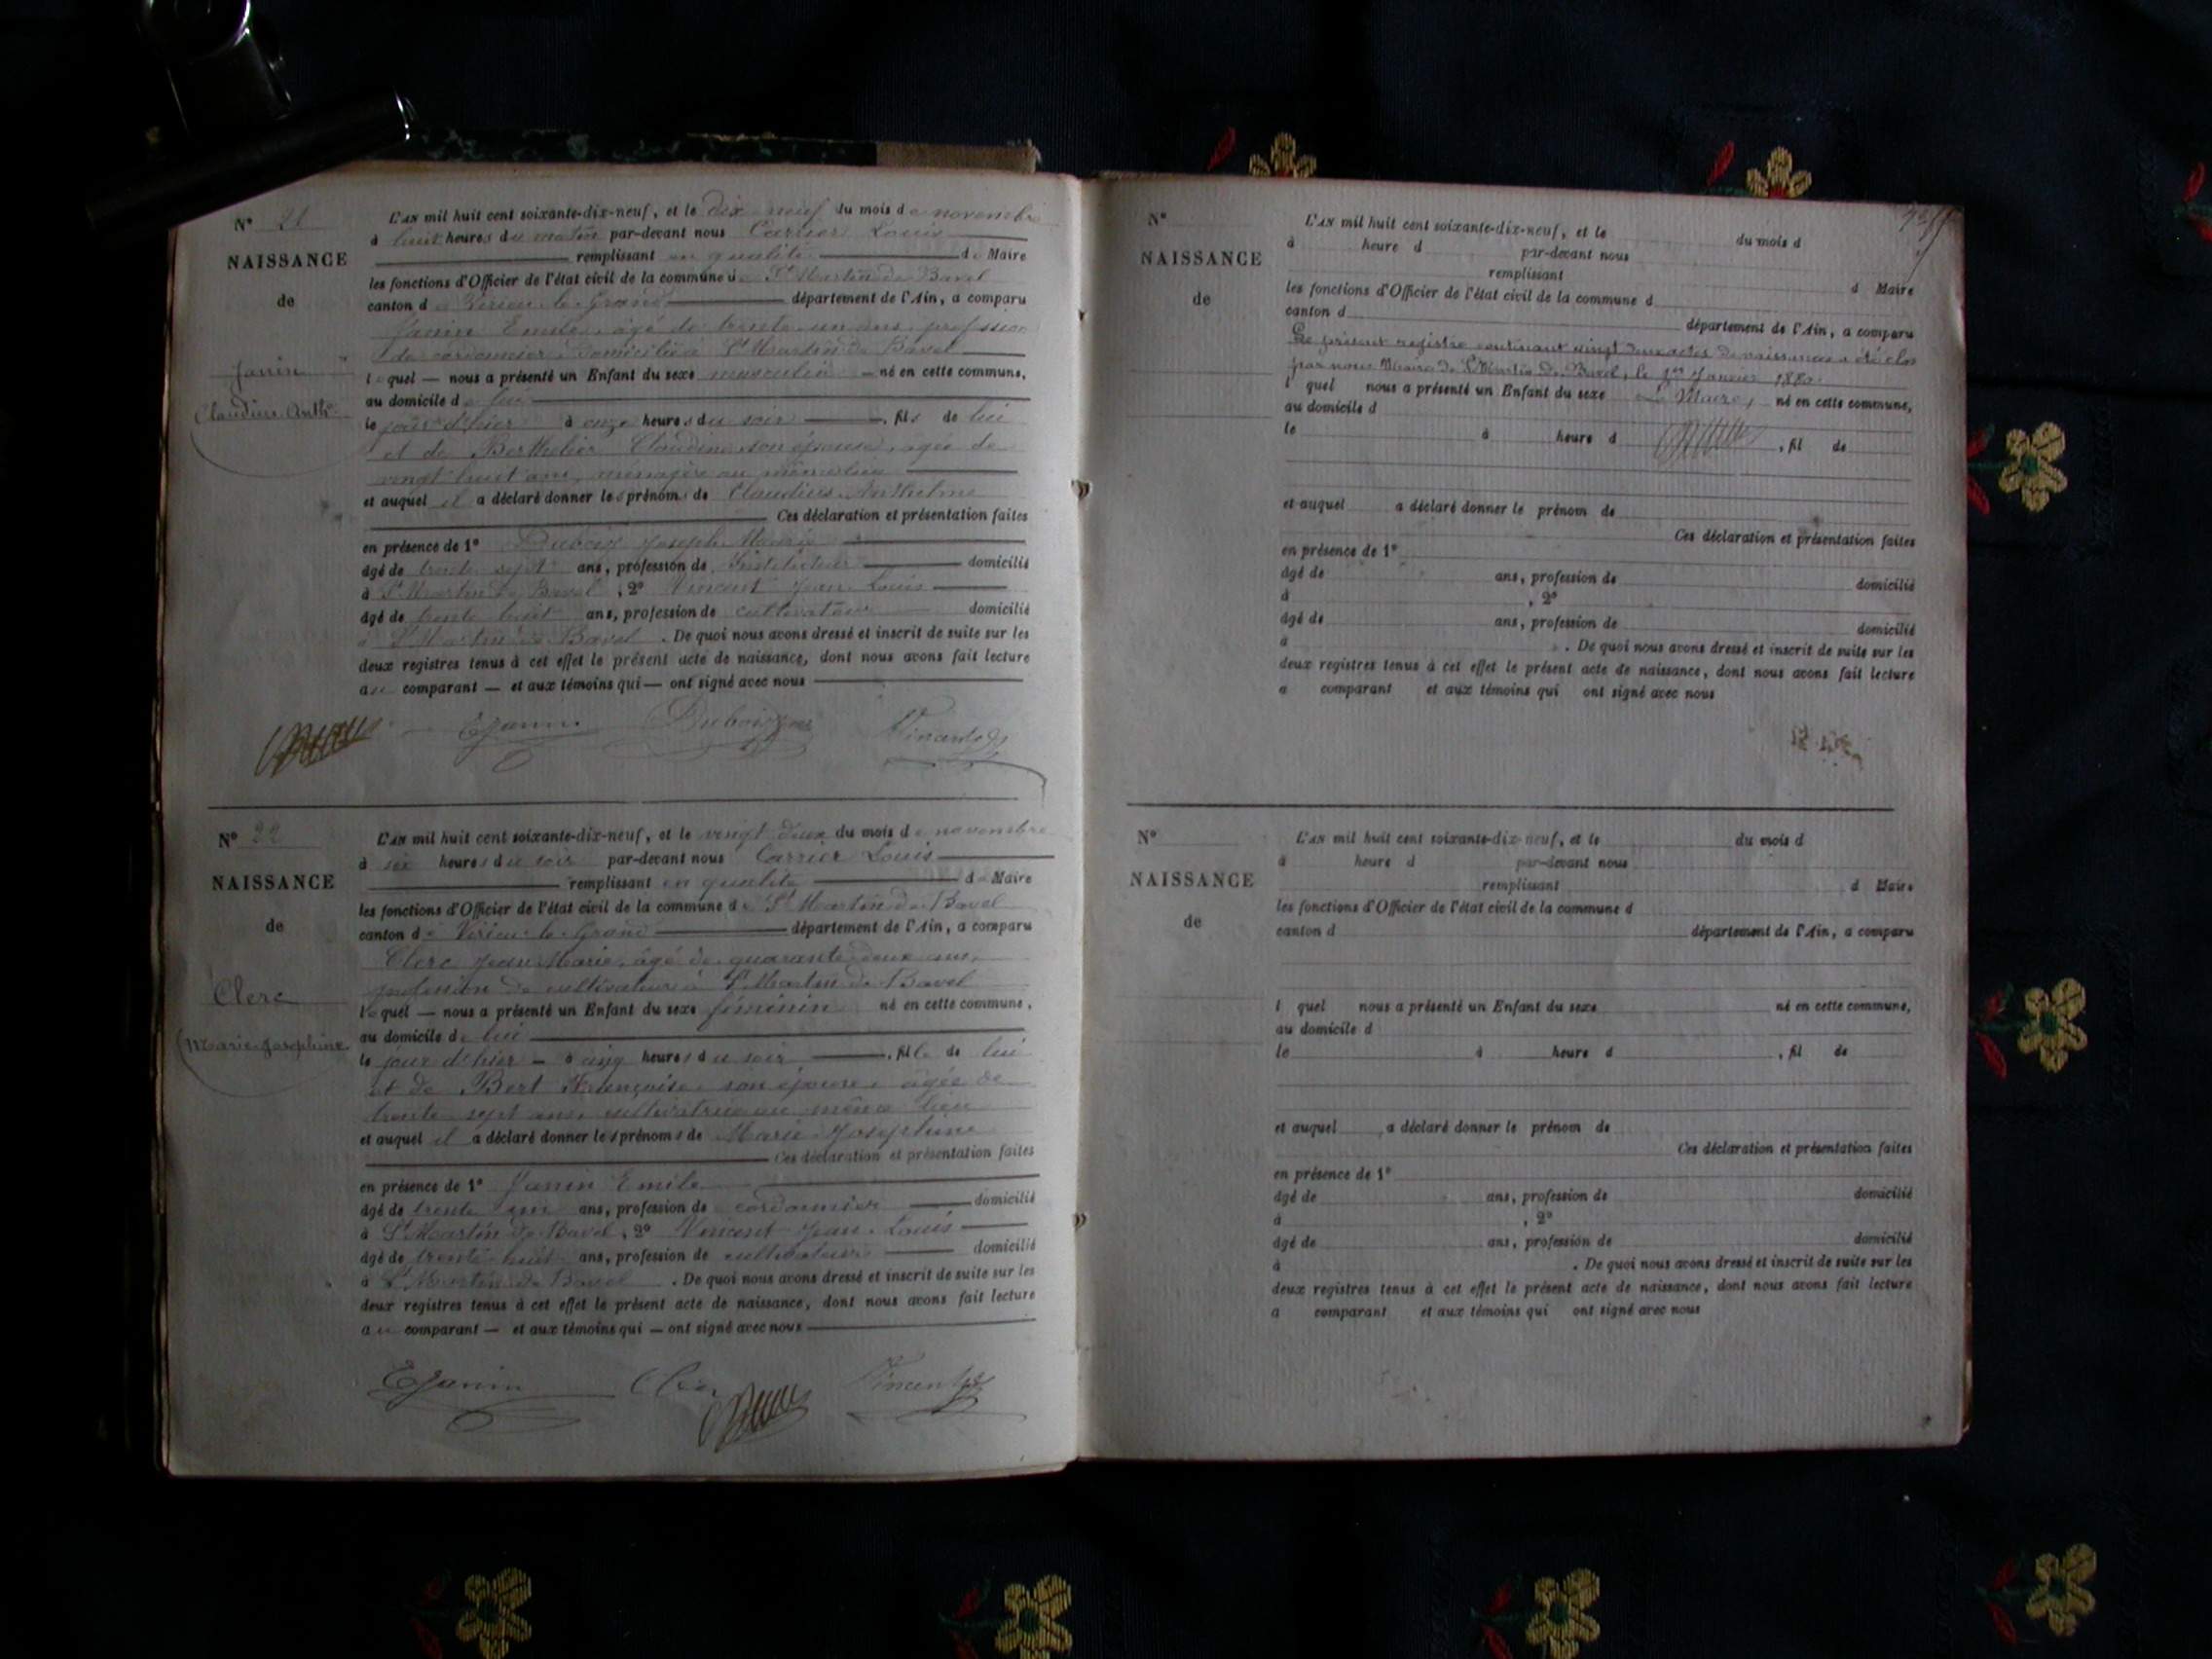 N° 21
NAISSANCE
de
Janin
Claudius Anth.
L'AN mil huit cent soixante-dix-neuf, et le dix neuf du mois de novembre
à huit heures du matin par-devant nous Carrier Louis
remplissant en qualité de Maire
les fonctions d'Officier de l'état civil de la commune de St Martin de Bavel
canton de Virieu le Grand département de l'Ain, a comparu
Janin Emile, âgé de trente un ans, profession
de cordonnier domicilié à St Martin de Bavel
lequel — nous a présenté un Enfant du sexe masculin — né en cette commune,
au domicile de lui
le jour d'hier à onze heures du soir , fils de lui
et de Berthelier Claudine son épouse, agée de
vingt huit ans, ménagère au même lieu
et auquel il a déclaré donner les prénoms de Claudius Anthelme
Ces déclaration et présentation faites
en présence de 1° Dubois Joseph Marie
âgé de trente sept ans, profession de Instituteur domicilié
à St Martin de Bavel , 2° Vincent Jean Louis
âgé de trente huit ans, profession de cultivateur domicilié
à St Martin de Bavel . De quoi nous avons dressé et inscrit de suite sur les
deux registres tenus à cet effet le présent acte de naissance, dont nous avons fait lecture
au comparant — et aux témoins qui — ont signé avec nous
EJanin Dubois Vincent
N° 22
NAISSANCE
de
Clerc
Marie Josephine
L'AN mil huit cent soixante-dix-neuf, et le vingt deux du mois de novembre
à six heures du soir par-devant nous Carrier Louis
remplissant en qualité de Maire
les fonctions d'Officier de l'état civil de la commune de St Martin de Bavel
canton de Virieu le Grand département de l'Ain, a comparu
Clerc Jean Marie, âgé de quarante deux ans,
profession de cultivateur à St Martin de Bavel
lequel — nous a présenté un Enfant du sexe féminin né en cette commune,
au domicile de lui
le jour d'hier — à cinq heures du soir , fille de lui
et de Bert Françoise son épouse âgée de
trente sept ans, cultivatrice au même lieu
et auquel il a déclaré donner les prénoms de Marie Josephine
Ces déclaration et présentation faites
en présence de 1° Janin Emile
âgé de trente un ans, profession de cordonnier domicilié
à St Martin de Bavel, 2° Vincent Jean Louis
âgé de trente huit ans, profession de cultivateur domicilié
à St Martin de Bavel . De quoi nous avons dressé et inscrit de suite sur les
deux registres tenus à cet effet le présent acte de naissance, dont nous avons fait lecture
au comparant — et aux témoins qui — ont signé avec nous
EJanin Clerc Vincent
N°
NAISSANCE
de
L'AN mil huit cent soixante-dix-neuf, et le du mois d
à heure d par-devant nous
remplissant d Maire
les fonctions d'Officier de l'état civil de la commune d
canton d département de l'Ain, a comparu
Le présent registre contenant vingt deux actes de naissance a été clos
par nous Maire de St Martin de Bavel, le 1er Janvier 1880.
l quel nous a présenté un Enfant du sexe Le Maire, né en cette commune,
au domicile d
le à heure d , fil de
et auquel a déclaré donner le prénom de
Ces déclaration et présentation faites
en présence de 1°
âgé de ans, profession de domicilié
à , 2°
âgé de ans, profession de domicilié
à . De quoi nous avons dressé et inscrit de suite sur les
deux registres tenus à cet effet le présent acte de naissance, dont nous avons fait lecture
a comparant et aux témoins qui ont signé avec nous
N°
NAISSANCE
de
L'AN mil huit cent soixante-dix-neuf, et le du mois d
à heure d par-devant nous
remplissant d Maire
les fonctions d'Officier de l'état civil de la commune d
canton d département de l'Ain, a comparu
l quel nous a présenté un Enfant du sexe né en cette commune,
au domicile d
le à heure d , fil de
et auquel a déclaré donner le prénom de
Ces déclaration et présentation faites
en présence de 1°
âgé de ans, profession de domicilié
à , 2°
âgé de ans, profession de domicilié
à . De quoi nous avons dressé et inscrit de suite sur les
deux registres tenus à cet effet le présent acte de naissance, dont nous avons fait lecture
a comparant et aux témoins qui ont signé avec nous